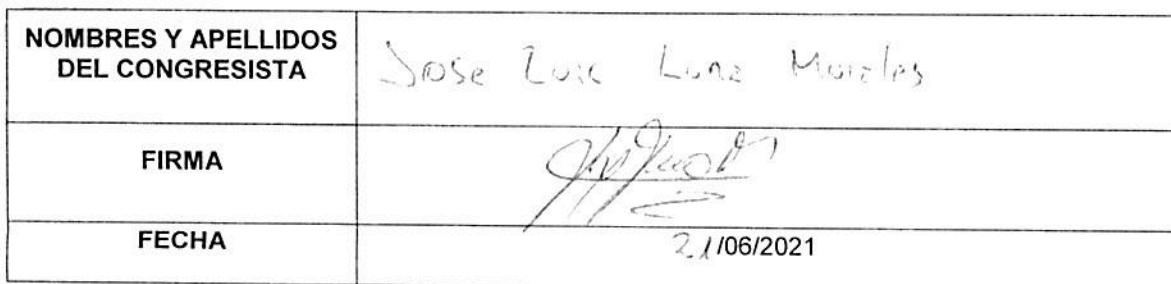 NOMBRES Y APELLIDOS
DEL CONGRESISTA
Jose Luis Luna Morales
FIRMA
FECHA
21/06/2021